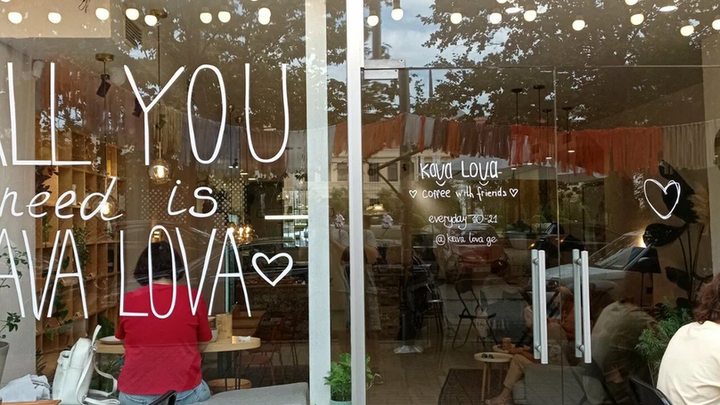 ALL YOU
need is
KAVA LOVA♡
Kava Lova
♡ coffee with friends ♡
everyday 10-21
@kava.lova.ge